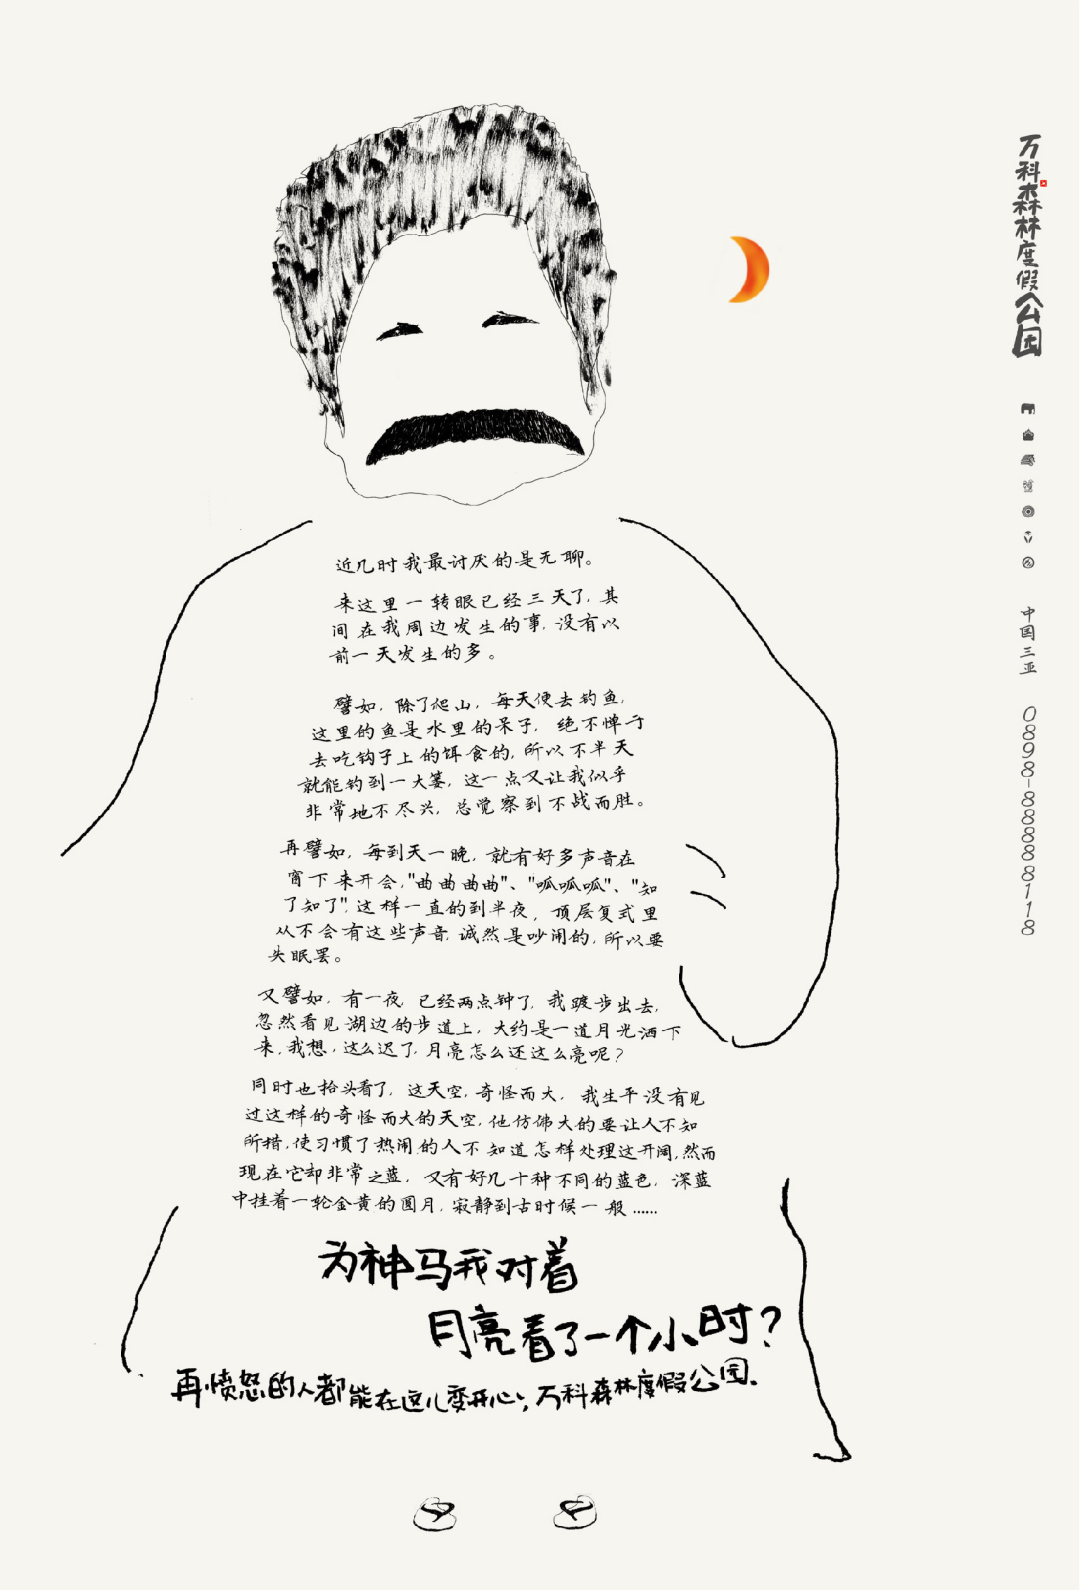 近几时我最讨厌的是无聊。
来这里一转眼已经三天了，其
间在我周边发生的事，没有以
前一天发生的多。
譬如，除了爬山，每天便去钓鱼，
这里的鱼是水里的呆子，绝不惮于
去吃钩子上的饵食的，所以不半天
就能钓到一大篓，这一点又让我似乎
非常地不尽兴，总觉察到不战而胜。
再譬如，每到天一晚，就有好多声音在
窗下来开会，"曲曲曲曲"、"呱呱呱"、"知
了知了"，这样一直的到半夜，顶层复式里
从不会有这些声音，诚然是吵闹的，所以要
失眠罢。
又譬如，有一夜，已经两点钟了，我踱步出去，
忽然看见湖边的步道上，大约是一道月光洒下
来，我想，这么迟了，月亮怎么还这么亮呢？
同时也抬头看了，这天空，奇怪而大，我生平没有见
过这样的奇怪而大的天空，他仿佛大的要让人不知
所措，使习惯了热闹的人不知道怎样处理这开阔，然而
现在它却非常之蓝，又有好几十种不同的蓝色，深蓝
中挂着一轮金黄的圆月，寂静到古时候一般……
为神马我对着
月亮看了一个小时？
再愤怒的人都能在这儿变开心；万科森林度假公园.
万科森林度假公园
中国三亚
0898-88888118